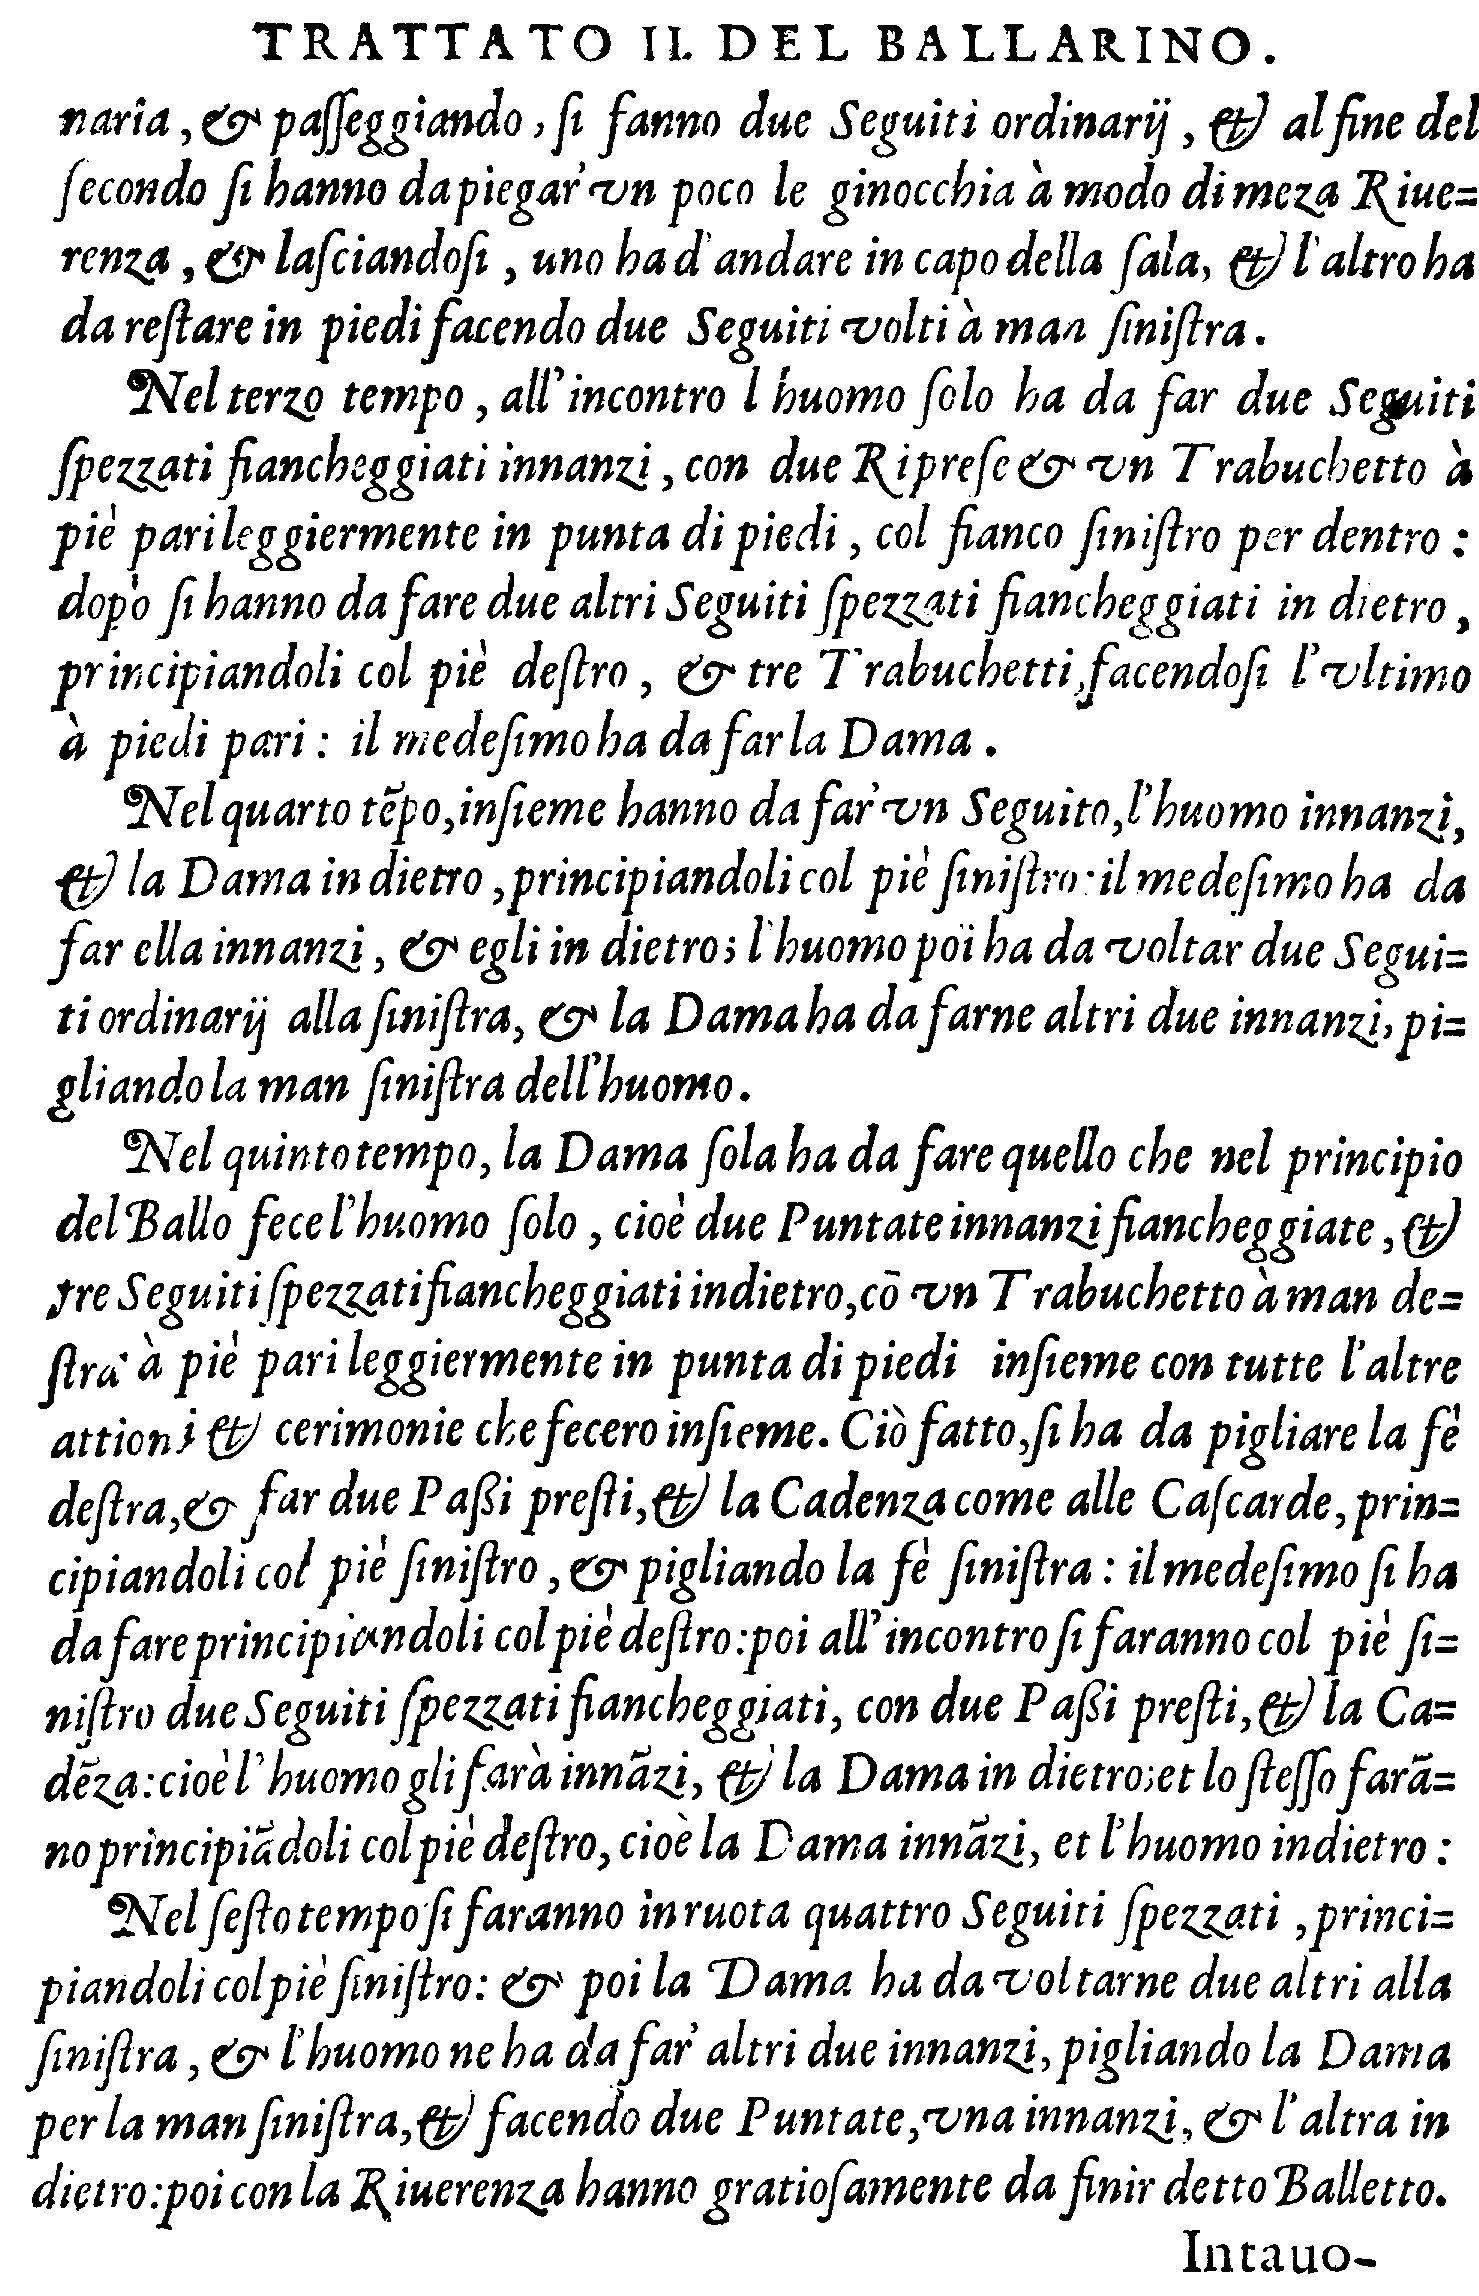 TRATTATO II. DEL BALLARINO.
naria, & paſſeggiando, ſi fanno due Seguiti ordinarij, & al fine del
ſecondo ſi hanno da piegar' vn poco le ginocchia à modo di meza Riue=
renza, & laſciandoſi, uno ha d'andare in capo della ſala, & l'altro ha
da reſtare in piedi facendo due Seguiti volti à man ſiniſtra.
Nel terzo tempo, all'incontro l huomo ſolo ha da far due Seguiti
ſpezzati fiancheggiati innanzi, con due Ripreſe & vn Trabuchetto à
piè pari leggiermente in punta di piedi, col fianco ſiniſtro per dentro:
dopò ſi hanno da fare due altri Seguiti ſpezzati fiancheggiati in dietro,
principiandoli col piè deſtro, & tre Trabuchetti, facendoſi l'vltimo
à piedi pari: il medeſimo ha da far la Dama.
Nel quarto tẽpo, inſieme hanno da far' vn Seguito, l'huomo innanzi,
& la Dama in dietro, principiandoli col piè ſiniſtro: il medeſimo ha da
far ella innanzi, & egli in dietro; l'huomo poi ha da voltar due Segui=
ti ordinarij alla ſiniſtra, & la Dama ha da farne altri due innanzi, pi=
gliando la man ſiniſtra dell'huomo.
Nel quinto tempo, la Dama ſola ha da fare quello che nel principio
del Ballo fece l'huomo ſolo, cioè due Puntate innanzi fiancheggiate, &
tre Seguiti ſpezzati fiancheggiati indietro, cõ vn Trabuchetto à man de=
ſtra à piè pari leggiermente in punta di piedi inſieme con tutte l'altre
attioni & cerimonie che fecero inſieme. Ciò fatto, ſi ha da pigliare la fè
deſtra, & far due Paßi preſti, & la Cadenza come alle Caſcarde, prin=
cipiandoli col piè ſiniſtro, & pigliando la fè ſiniſtra: il medeſimo ſi ha
da fare principiandoli col piè deſtro: poi all'incontro ſi faranno col piè ſi=
niſtro due Seguiti ſpezzati fiancheggiati, con due Paßi preſti, & la Ca=
dẽza: cioè l'huomo gli farà innãzi, & la Dama in dietro; et lo ſteſſo farã=
no principiãdoli col piè deſtro, cioè la Dama innãzi, et l'huomo indietro:
Nel ſeſto tempo ſi faranno in ruota quattro Seguiti ſpezzati, princi=
piandoli col piè ſiniſtro: & poi la Dama ha da voltarne due altri alla
ſiniſtra, & l'huomo ne ha da far' altri due innanzi, pigliando la Dama
per la man ſiniſtra, & facendo due Puntate, vna innanzi, & l'altra in
dietro: poi con la Riuerenza hanno gratioſamente da finir detto Balletto.
Intauo-